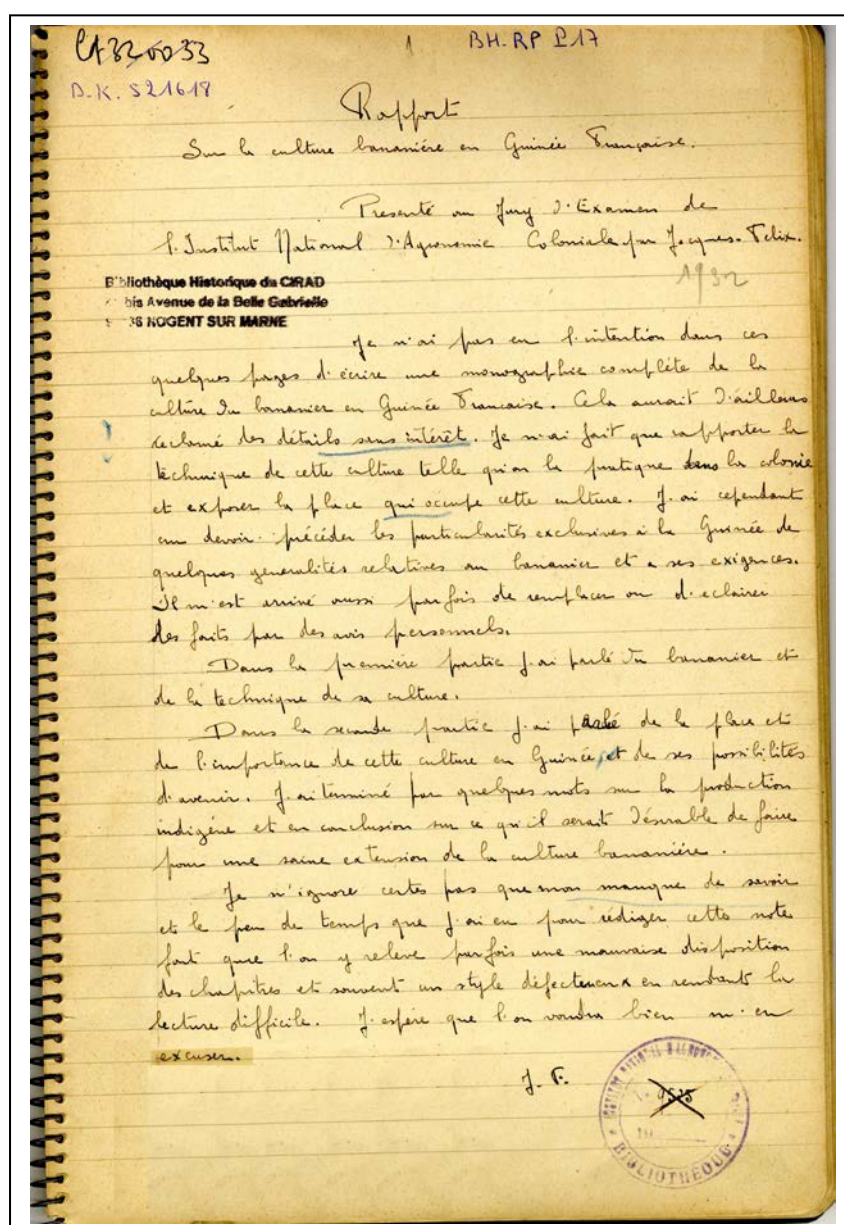 BH.RP P.17
1
B.K. S21618
Rapport
Sur la culture bananière en Guinée Française.
Presenté au Jury d'Examen de
l'Institut National d'Agronomie Coloniale par Jacques-Felix.
1932
Bibliothèque Historique du CIRAD
bis Avenue de la Belle Gabrielle
NOGENT SUR MARNE
Je n'ai pas eu l'intention dans ces
quelques pages d'écrire une monographie complète de la
culture du bananier en Guinée Francaise. Cela aurait d'ailleurs
reclamé des détails sans intérêt. Je n'ai fait que rapporter la
technique de cette culture telle qu'on la pratique dans la colonie
et exposer la place qui occupe cette culture. J'ai cependant
cru devoir précéder les particularités exclusives à la Guinée de
quelques generalités relatives au bananier et a ses exigences.
Il m'est arrivé aussi parfois de remplacer ou d'eclairer
des faits par des avis personnels.
Dans la première partie j'ai parlé du bananier et
de la technique de sa culture.
Dans la seconde partie j'ai parlé de la place et
de l'importance de cette culture en Guinée, et de ses possibilités
d'avenir. J'ai terminé par quelques mots sur la production
indigène et en conclusion sur ce qu'il serait désirable de faire
pour une saine extension de la culture bananière.
Je n'ignore certes pas que mon manque de savoir
et le peu de temps que j'ai eu pour rédiger cette note
font que l'on y releve parfois une mauvaise disposition
des chapitres et souvent un style défectueux en rendant la
lecture difficile. J'espère que l'on voudra bien m'en
excuser.
J. F.
INSTITUT NATIONAL D'AGRONOMIE
BIBLIOTHÈQUE